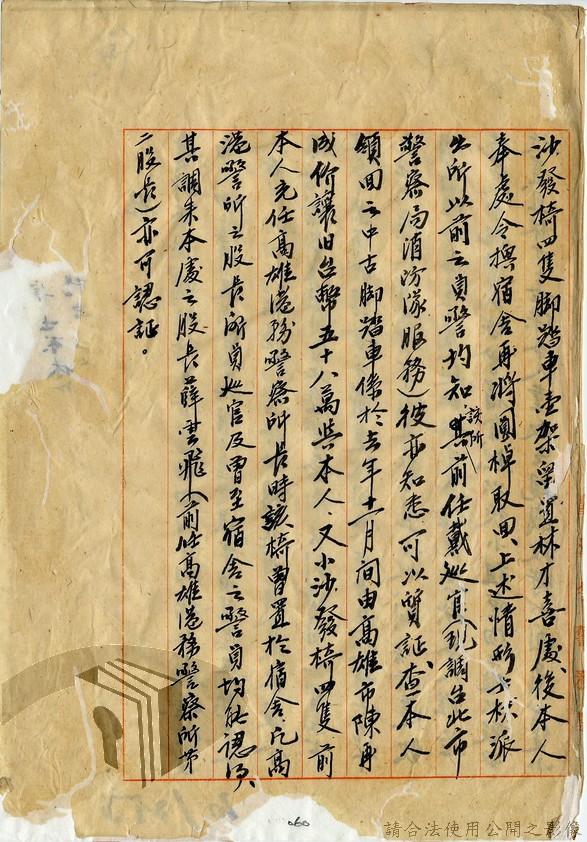 沙發椅四隻脚踏車壹架留置林才喜處後本人
奉處令撥宿舍再將圓棹取回上述情形云林派
出所以前之員警均知該所前任戴巡官(現調台北市
警察局消防隊服務)彼亦知悉可以質証查本人
領回之中古脚踏車係於去年十一月間由高雄市陳再
成价讓旧台幣五十八萬與本人又小沙發椅四隻前
本人充任高雄港務警察所長時該椅曾置於宿舍凡高
港警所之股長所員巡官及曾至宿舍之警員均能認
其調来本處之股長薛雲飛(前任高雄港務警察所第
二股長)亦可認証。
060
請合法使用公開之影像